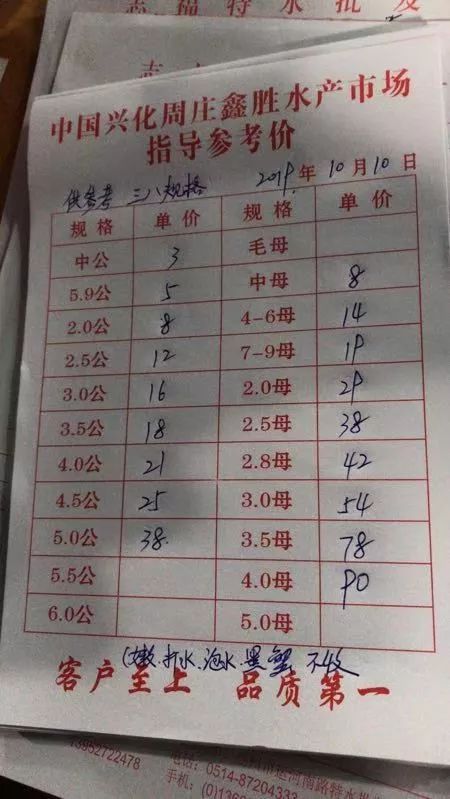 志福特水批发
中国兴化周庄鑫胜水产市场
指导参考价
供参考 三八规格 2019年10月10日
规格 单价 规格 单价
中公 3 毛母
5.9公 5 中母 8
2.0公 8 4-6母 14
2.5公 12 7-9母 19
3.0公 16 2.0母 29
3.5公 18 2.5母 38
4.0公 21 2.8母 42
4.5公 25 3.0母 54
5.0公 38 3.5母 78
5.5公 4.0母 90
6.0公 5.0母
(嫩.打水.泡水.黑蟹 不收
客户至上 品质第一
13952722478
电话: 0514-87204333